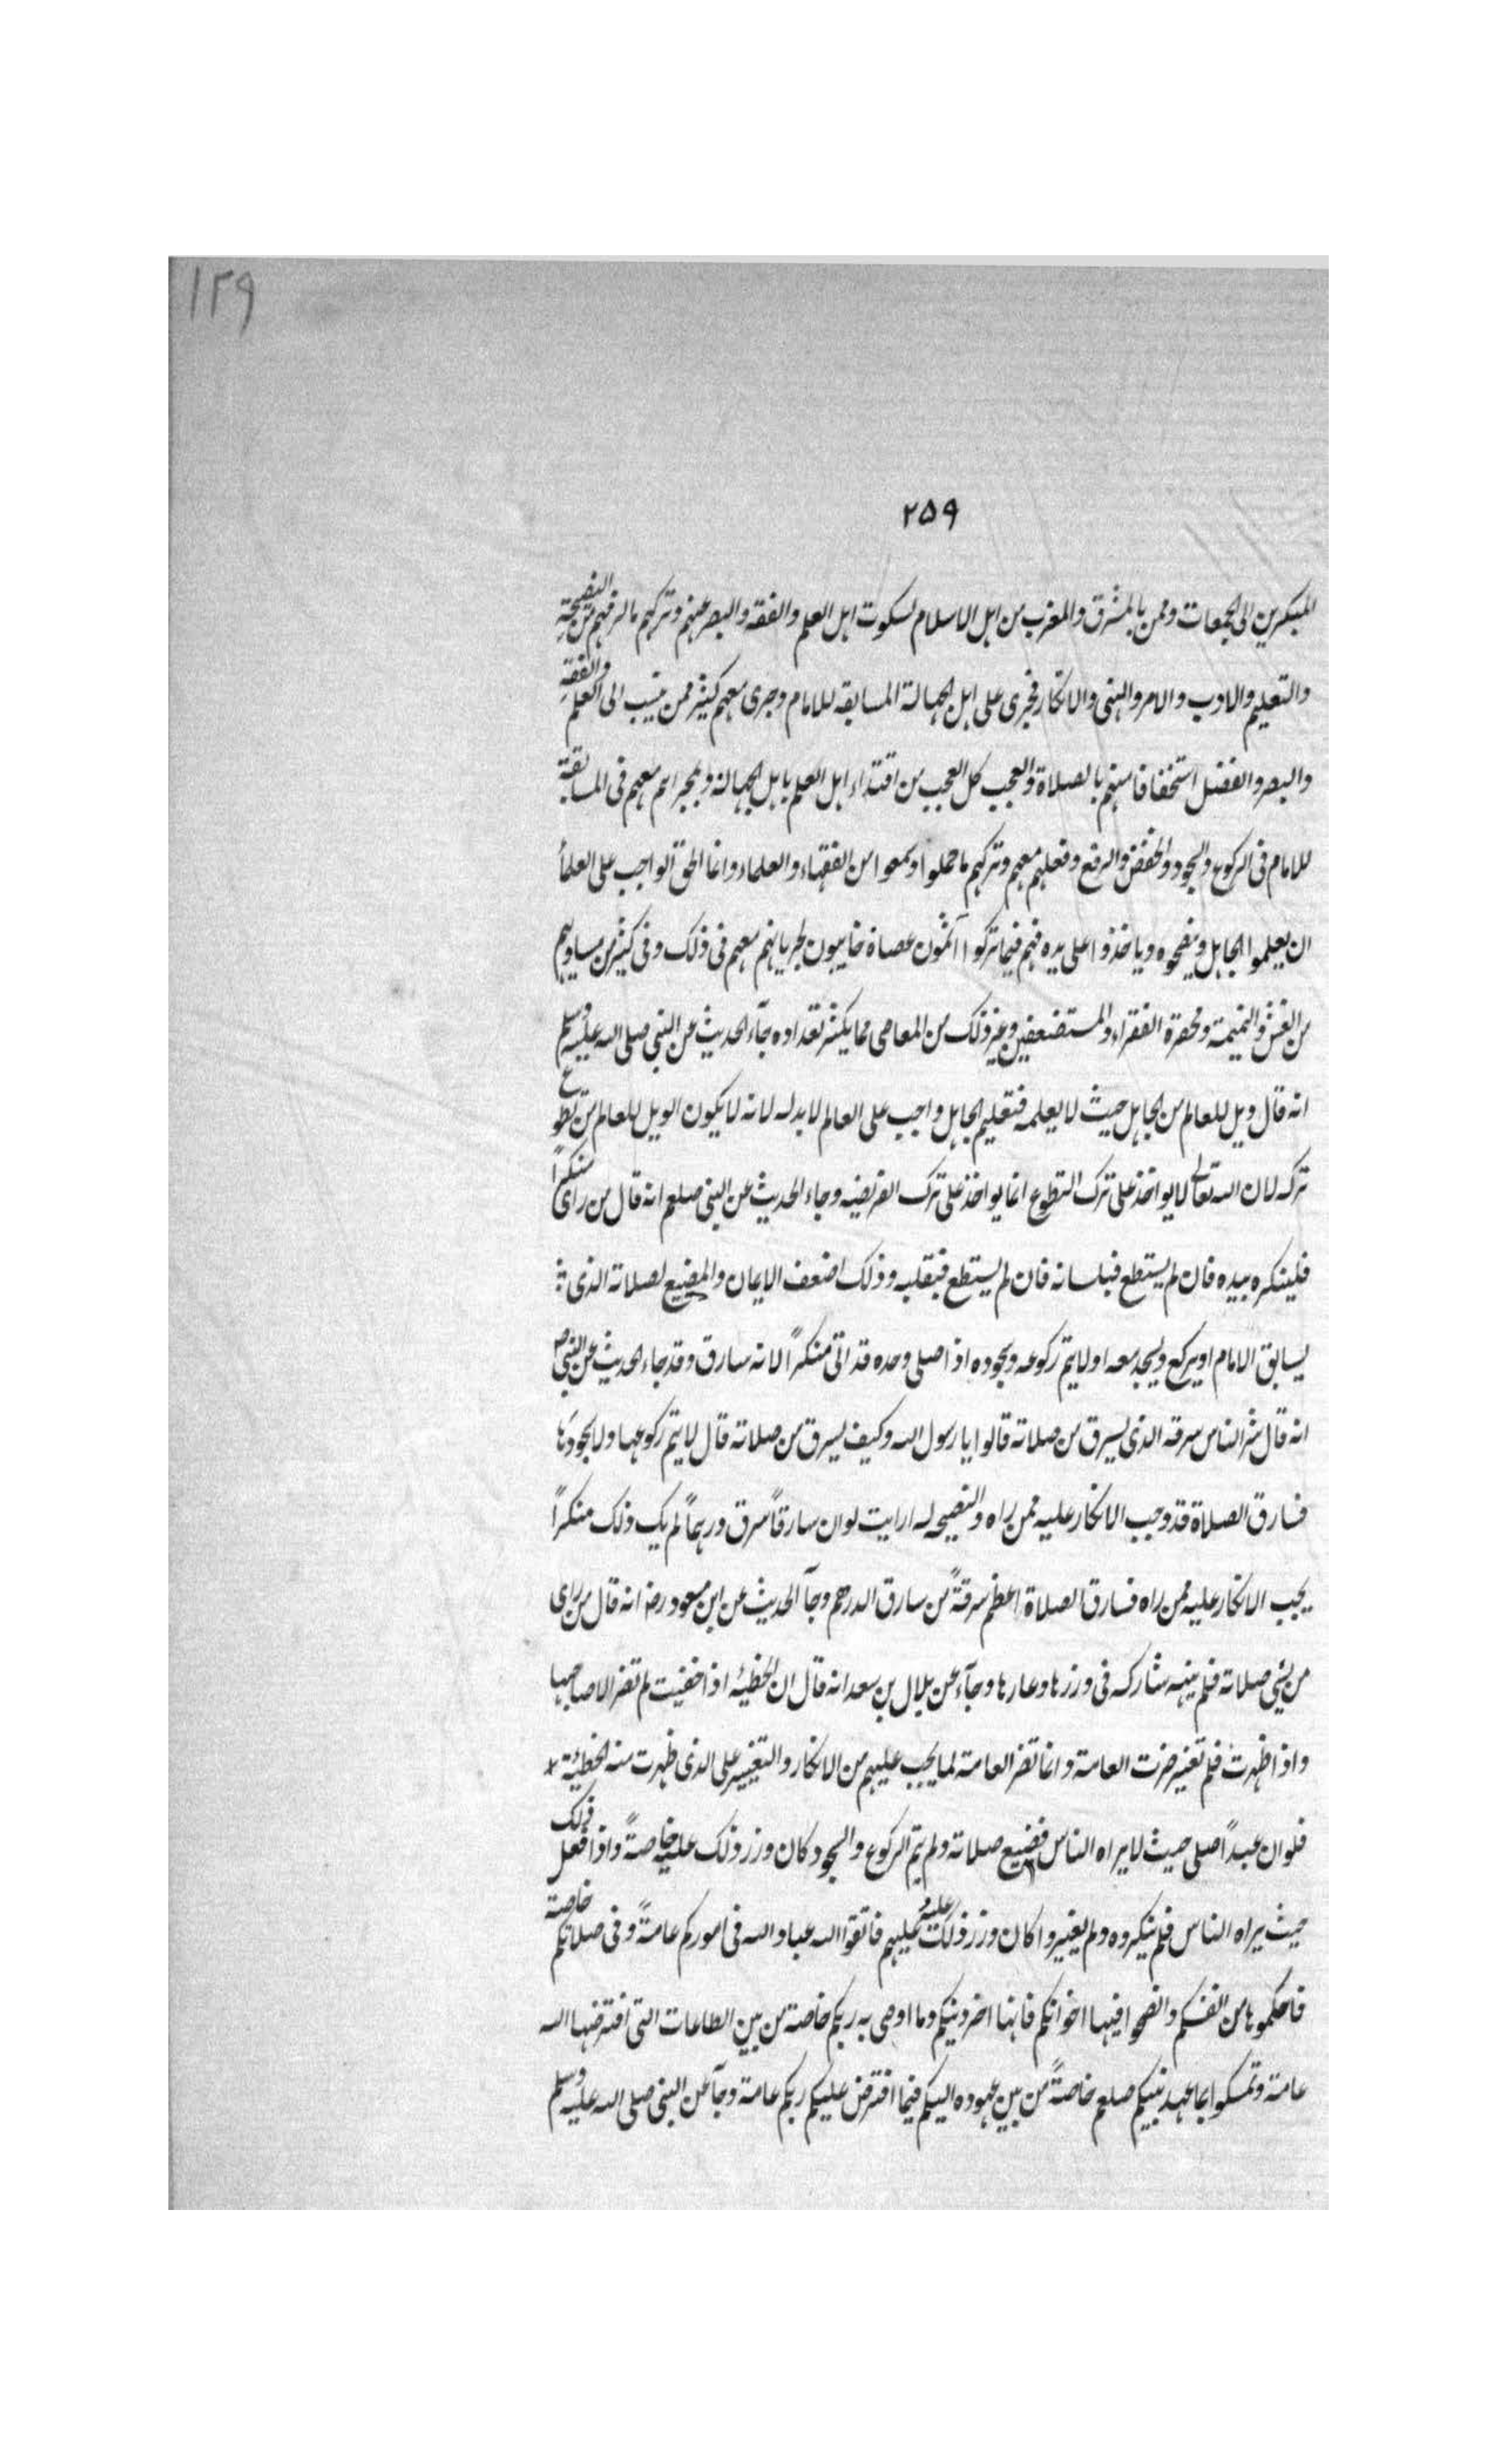 ١٢٩
٢٥٩
المبكرين الى الجمعات وممن بالمشرق والمغرب من اهل الاسلام لسكوت اهل العلم والفقه والبصر عنهم وتركهم ما لزمهم من النصيحة
والتعليم والادب والامر والنهى والانكار فجرى على اهل الجهالة المسابقه للامام وجرى معهم كثير ممن ينسب الى العلم والفقه
والبصر والفضل استخفافا منهم بالصلاة والعجب كل العجب من اقتداء اهل العلم باهل الجهالة ومجراهم معهم فى المسابقة
للامام فى الركوع والسجود والخفض والرفع وفعلهم معهم وتركهم ما حملوا وسمعوا من الفقهاء والعلماء وانما الحق الواجب على العلمأ
ان يعلموا الجاهل وينصحوه وياخذوا على يده فهم فيما تركوا آثمون عصاة خاينون لجريانهم معهم فى ذلك وفى كثير من مساويهم
من الغش والنميمة ومحقرة الفقراء والمستضعفين وغير ذلك من المعاصى مما يكثر تعداده جآء الحديث عن النبى صلى الله عليه وسلم
انه قال ويل للعالم من الجاهل حيث لا يعلمه فتعليم الجاهل واجب على العالم لا بد له لانه لا يكون الويل للعالم من تطوع
تركه لان الله تعالى لا يواخذ على ترك التطوع انما يواخذ على ترك الفريضه وجاء الحديث عن النبى صلعم انه قال من راى منكراً
فلينكره بيده فان لم يستطع فبلسانه فان لم يستطع فبقلبه وذلك اضعف الايمان والمضيع لصلاته الذى
يسابق الامام او يركع ويسجد معه او لا يتم ركوعه وسجوده اذا صلى وحده قد اتى منكراً لانه سارق وقد جاء الحديث عن النبى ص
انه قال شر الناس سرقه الذى يسرق من صلاته قالوا يا رسول الله وكيف يسرق من صلاته قال لا يتم ركوعها ولا سجودها
فسارق الصلاة قد وجب الانكار عليه ممن راه والنصيحه له ارايت لو ان سارقاً سرق درهماً لم يك ذلك منكراً
يجب الانكار عليه ممن راه فسارق الصلاة اعظم سرقةً من سارق الدرهم وجآ الحديث عن ابن مسعود رضه انه قال من راى
من يسئ صلاته فلم ينهه شاركه فى وزرها وعارها وجآء عن بلال بن سعد انه قال ان الخطيئه اذا خفيت لم تضر الا صاحبها
واذا ظهرت فلم تغير ضرت العامة وانما تضر العامة لما يجب عليهم من الانكار والتغيير على الذى ظهرت منه الخطيئة
فلو ان عبداً صلى حيث لا يراه الناس فضيع صلاته ولم يتم الركوع والسجود كان وزر ذلك عليه خاصةً واذا فعل ذلك
حيث يراه الناس فلم ينكروه ولم يغيروا كان وزر ذلك عليه وعليهم فاتقوا الله عباد الله فى اموركم عامةً وفى صلاتكم خاصة
فاحكموها من انفسكم وانصحوا فيها اخوانكم فانها اخر دينكم وما اوصى به ربكم خاصة من بين الطاعات التى افترضها الله
عامة وتمسكوا بما عهد نبيكم صلعم خاصةً من بين عهوده اليكم فيما افترض عليكم ربكم عامة وجآ عن النبى صلى الله عليه وسلم